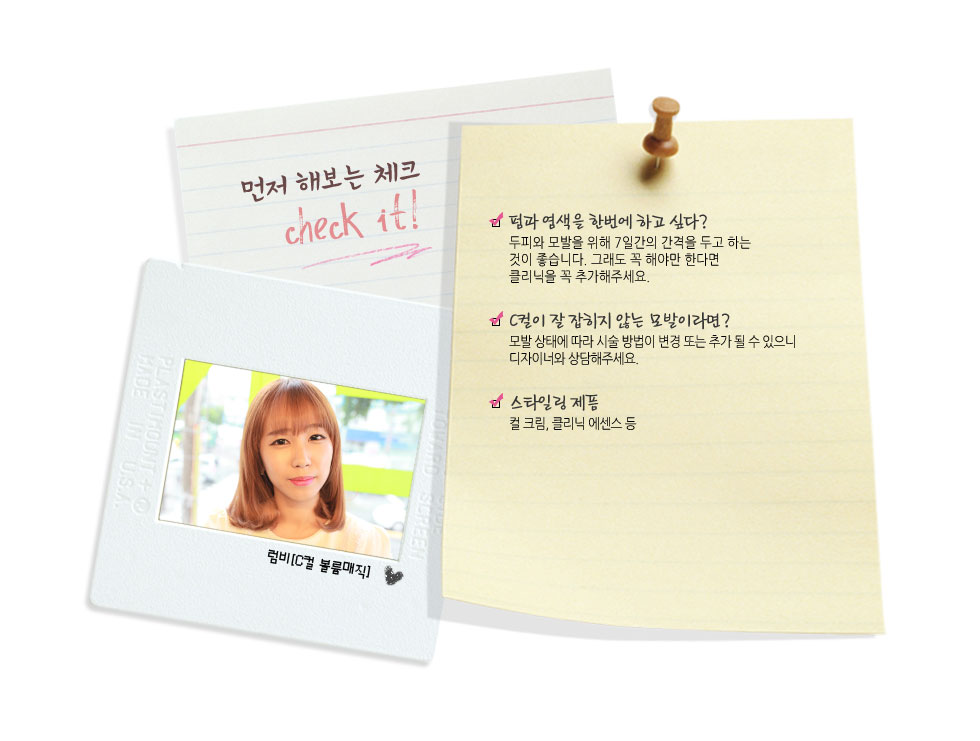 먼저 해보는 체크
check it!
펌과 염색을 한번에 하고 싶다?
두피와 모발을 위해 7일간의 간격을 두고 하는
것이 좋습니다. 그래도 꼭 해야만 한다면
클리닉을 꼭 추가해주세요.
C컬이 잘 잡히지 않는 모발이라면?
모발 상태에 따라 시술 방법이 변경 또는 추가 될 수 있으니
디자이너와 상담해주세요.
스타일링 제품
컬 크림, 클리닉 에센스 등
MADE IN U.S.A.
럼비[C컬 볼륨매직]